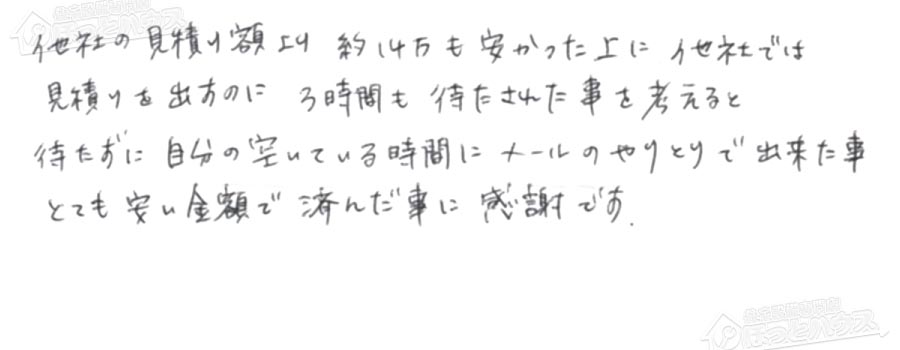 他社の見積り額より 約14万も安かった上に 他社では
見積りを出すのに 3時間も 待たされた事を考えると
待たずに 自分の空いている時間に メールのやりとりで出来た事
とても安い金額で 済んだ事に 感謝です.
ほっとハウス
ほっとハウス